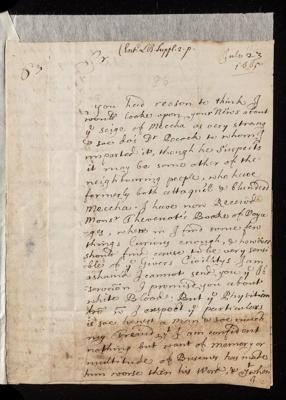 (Ent. LB. Suppl. 2. p.
July 23
1665
Sr.
you had reason to think I
would looke upon your News about
ye seige of Meccha as very strang
& soe dos Dr Pocock to whom I
imparted it, though he suspects
it may be some other of the
neighbouring people, who have
formerly both attaqu'd & plundred
Meccha. I have now Received
Monsr Thevenot's Booke of Voya-
ges, where in I find some few
things Curious enough, &
should find cause to be very sensi-
ble of ye Givers Civilitys. I am
asham'd I cannot send you ye
I promis'd you about
white Blood. But ye Physitian
from wm I expect ye particulars
is soe honest a man & soe much
my freind yt I am confident
nothing but want of memory, or
multitude of Busenes has made
him worse then his Word, &